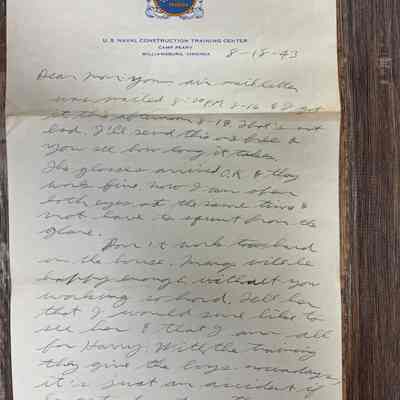 U. S. NAVAL CONSTRUCTION TRAINING CENTER
CAMP PEARY
WILLIAMSBURG, VIRGINIA
8-18-43
Dear mom: your air mail letter
was mailed 8:00 PM 8-16 & I got
it this afternoon 8-18. That's not
bad, I'll send this one free &
you see how long it takes.
The glasses arrived O.K & they
work fine, now I can open
both eyes at the same time &
not have to squint from the
glare.
Don't work too hard
on the house. Marge will be
happy enough without you
working so hard. Tell her
that I would sure like to
see her & that I am all
for Harry. With the training
they give the boys nowadays,
it's just an accident if